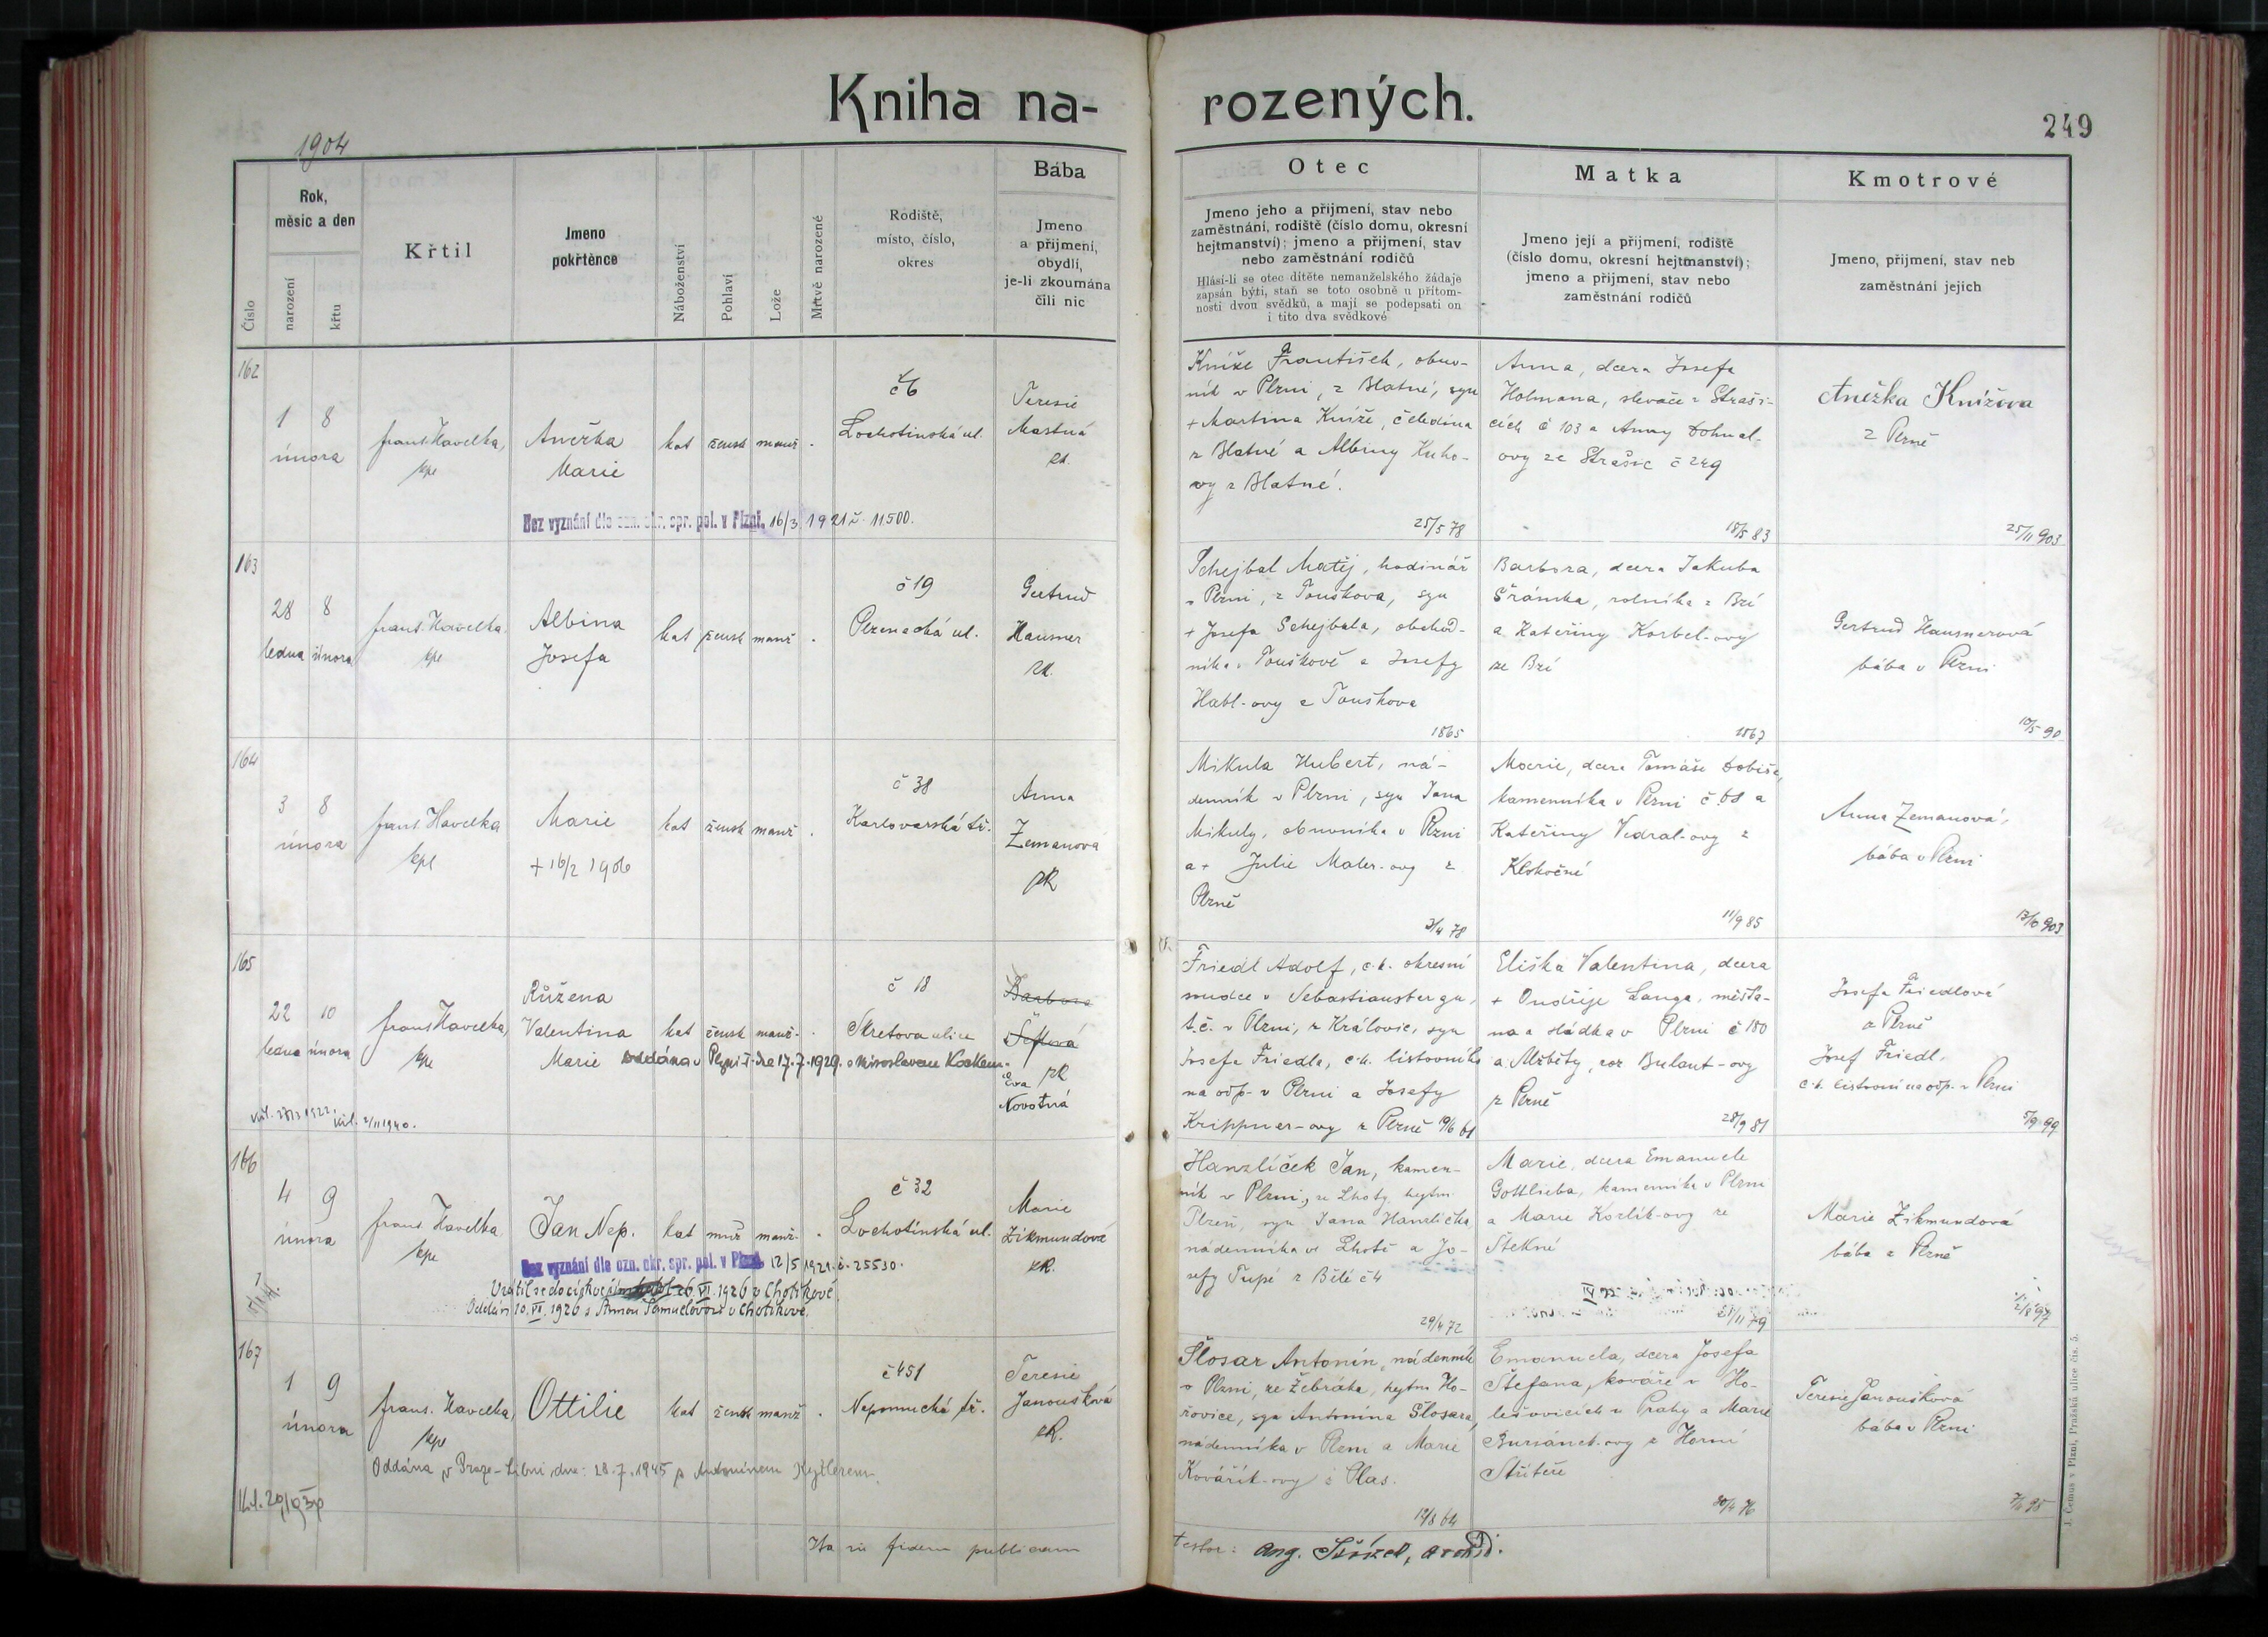 Kniha na-
rozených.
249
1904
Číslo
Rok,
měsíc a den
narození
křtu
Křtil
Jmeno
pokřtěnce
Náboženství
Pohlaví
Lože
Mrtvě narozené
Rodiště,
místo, číslo,
okres
Bába
Jmeno
a přijmení,
obydlí,
je-li zkoumána
čili nic
Otec
Jmeno jeho a přijmení, stav nebo
zaměstnání, rodiště (číslo domu, okresní
hejtmanství); jmeno a přijmení, stav
nebo zaměstnání rodičů
Hlásí-li se otec dítěte nemanželského žádaje
zapsán býti, staň se toto osobně u přítom-
nosti dvou svědků, a mají se podepsati on
i tito dva svědkové
Matka
Jmeno její a přijmení, rodiště
(číslo domu, okresní hejtmanství);
jmeno a přijmení, stav nebo
zaměstnání rodičů
Kmotrové
Jmeno, přijmení, stav neb
zaměstnání jejich
162
1 8
února
frant. Havelka,
kpl
Anežka
Marie
kat
žensk
manž
č 6
Lochotínská ul.
Teresie
Mastná
zk.
Bez vyznání dle ozn. okr. spr. pol. v Plzni. 16/3 1921 č. 11500.
Kníže František, obuv-
ník v Plzni, z Blatné, syn
+ Martina Kníže, čeledína
z Blatné a Albiny Kuho-
vy z Blatné.
25/5 78
Anna, dcera Josefa
Holmana, slevače v Straši-
cích č 103 a Anny Dohnal-
ovy ze Strašic č 249
18/5 83
Anežka Knížova
z Plzně
25/11 903
163
28 8
ledna února
frant. Havelka,
kpl
Albina
Josefa
kat
žensk
manž
č 19
Plzenecká ul.
Gertrud
Hausner
zk.
Schejbal Matěj, hodinář
v Plzni, z Touškova, syn
+ Josefa Schejbala, obchod-
níka v Touškově a Josefy
Habl-ovy z Touškova
1865
Barbora, dcera Jakuba
Šrámka, rolníka z Brí
a Kateřiny Korbel-ovy
ze Brí
1867
Gertrud Hausnerová
bába v Plzni
10/5 90
164
3 8
února
frant Havelka
kpl
Marie
+ 16/2 1906
kat
žensk
manž
č 38
Karlovarská tř.
Anna
Zemanová
zk
Mikula Hubert, ná-
denník v Plzni, syn Jana
Mikuly, obuvníka v Plzni
a + Julie Maler-ovy z
Plzně
3/4 78
Marie, dcera Tomáše Dobiše,
kamenníka v Plzni č 68 a
Kateřiny Vedral-ovy z
Klokočné
11/9 85
Anna Zemanová,
bába v Plzni
13/6 903
165
22 10
ledna února
frant Havelka,
kpl
Růžena
Valentina
Marie
kat
žensk
manž.
č 18
Skretova ulice
Barbora
Šeflová
zk
Eva
Novotná
oddána v Plzni I. dne 17.7.1929. s Miroslavem Kockem.
Friedl Adolf, c.k. okresní
soudce v Sebastiansbergu,
t.č. v Plzni, z Královic, syn
Josefa Friedla, c.k. listovního
na odp. v Plzni a Josefy
Krippner-ovy z Plzně 19/6 61
Eliška Valentina, dcera
+ Ondřeje Langa, měšťa-
na a sládka v Plzni č 180
a Alžběty, roz. Bulant-ovy
z Plzně
28/9 81
Josefa Friedlová
z Plzně
Josef Friedl,
c.k. listovní na odp. v Plzni
5/9 99
166
4 9
února
frant. Havelka
kpl
Jan Nep.
kat
muž
manž.
č 32
Lochotínská ul.
Marie
Zikmundová
zk.
Bez vyznání dle ozn. okr. spr. pol. v Plzni. 12/5 1921. č. 25530.
Vrátil se do církve 6. VI. 1926 v Chotíkově.
Oddán 10. VI. 1926 s Annou Samuelovou v Chotíkově.
Hanzlíček Jan, kamen-
ník v Plzni, ze Lhoty, hejtm
Plzeň, syn Jana Hanzlíčka,
nádenníka ve Lhotě a Jo-
sefy Tupé z Bělé č 4
29/4 72
Marie, dcera Emanuele
Gottlieba, kamenníka v Plzni
a Marie Kozlík-ovy ze
Štěkně
21/11 79
Marie Zikmundová
bába z Plzně
2/8 97
167
1 9
února
frant. Havelka,
kpl
Ottilie
kat
žensk
manž
č 451
Nepomucká tř.
Teresie
Janoušková
zk.
Oddána v Praze-Libni dne: 28.7.1945 s Antonínem Kejtlerem.
Šlosar Antonín, nádenník
v Plzni, ze Žebráka, hejtm Ho-
řovice, syn Antonína Šlosara,
nádenníka v Plzni a Marie
Kovářík-ovy z Plas.
19/8 64
Emanuela, dcera Josefa
Štefana, kováře v Ho-
lešovicích u Prahy a Marie
Buriánek-ovy z Horní
Stříteře
30/4 76
Teresie Janoušková
bába v Plzni
Ita in fidem publicam
testor:
J. Čemus v Plzni, Pražská ulice čís. 5.